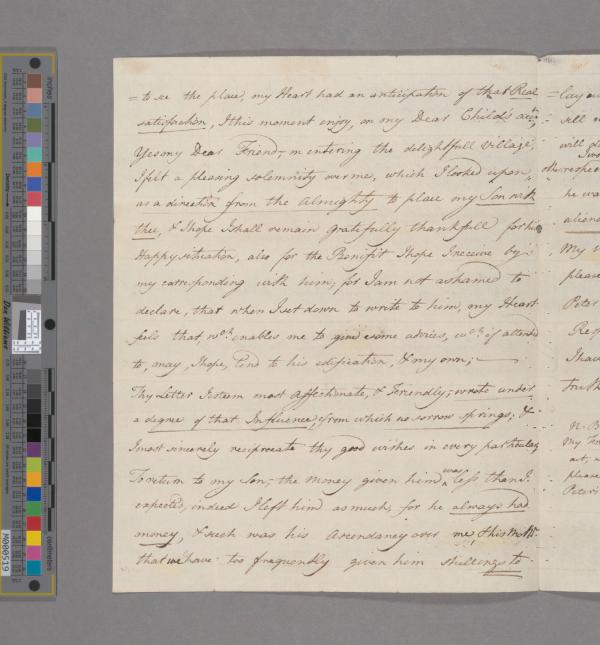 = to see the place, my Heart had an anticipation of that Real
satisfaction, I this moment enjoy, on my Dear Child's acct,
Yes my Dear Friend, in entering the delightfull Village,
I felt a pleasing solemnity over me, which I looked upon
as a direction from the Almighty to place my Son with
thee, & I hope I shall remain gratefully thankfull for his
Happy situation, also for the Benifit I hope I receive by
my corrisponding with him, for I am not ashamed to
declare, that when I set down to write to him, my Heart
feels that, wch enables me to give some advices, wch if attend
to, may I hope, tend to his edification, & my own; —
Thy Letter I esteem most affectionate, & Friendly, wrote under
a degree of that Influence, from which no sorrow springs; &
I most sincerely reciprocate thy good wishes in every particular
To return to my Son, the money given him was less than I
expected, indeed I left him as much, for he always had
money, & such was his Ascendancy over me, & his
that we have too frequently given him shillings to
= Lay
will
will pl
respec
he wa
aliena
My
please
Peter
Resp
I hav
truth
N. B
My Fr
act,
please
Peter's
Don Williams
inches
centimeters
M000519